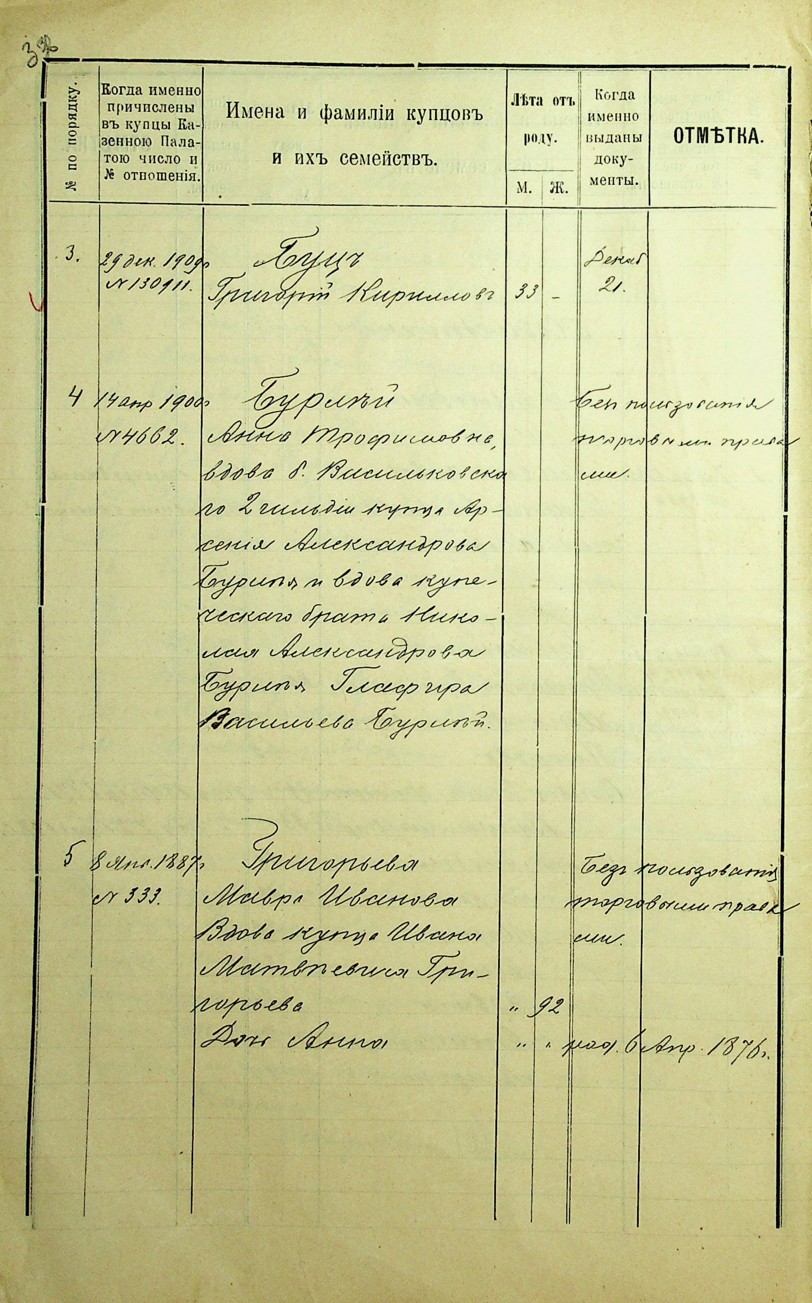 № по порядку.
Когда именно
причислены
въ купцы Ка-
зенною Пала-
тою число и
№ отношенія.
Имена и фамиліи купцовъ
и ихъ семействъ.
Лѣта отъ
роду.
М. Ж.
Когда
именно
выданы
доку-
менты.
ОТМѢТКА.
3.
29 дек. 1909г
№ 130911.
Буцъ
Григорій Кирилловъ
33 –
Декаб
21.
4
14 апр 1900г
№ 4662.
Бурлѣй
Анна Трофимовна,
вдова б. Васильковска
го 2 гильдіи купца Ар-
сенія Александрова
Бурлѣя и вдова купе-
ческаго брата Нико-
лая Александрова
Бурлѣя Глафира
Васильева Бурлѣй.
Без пользованія
торговыми права
ми.
5
8 Янв. 1887г
№ 333.
Григорьева
Мавра Иванова
Вдова купца Ивана
Матвѣевича Гри-
горьева
„ 92
Дочь Анна
„ „ род. 6 Апр. 1876г.
Безъ пользованія
торговыми права
ми.